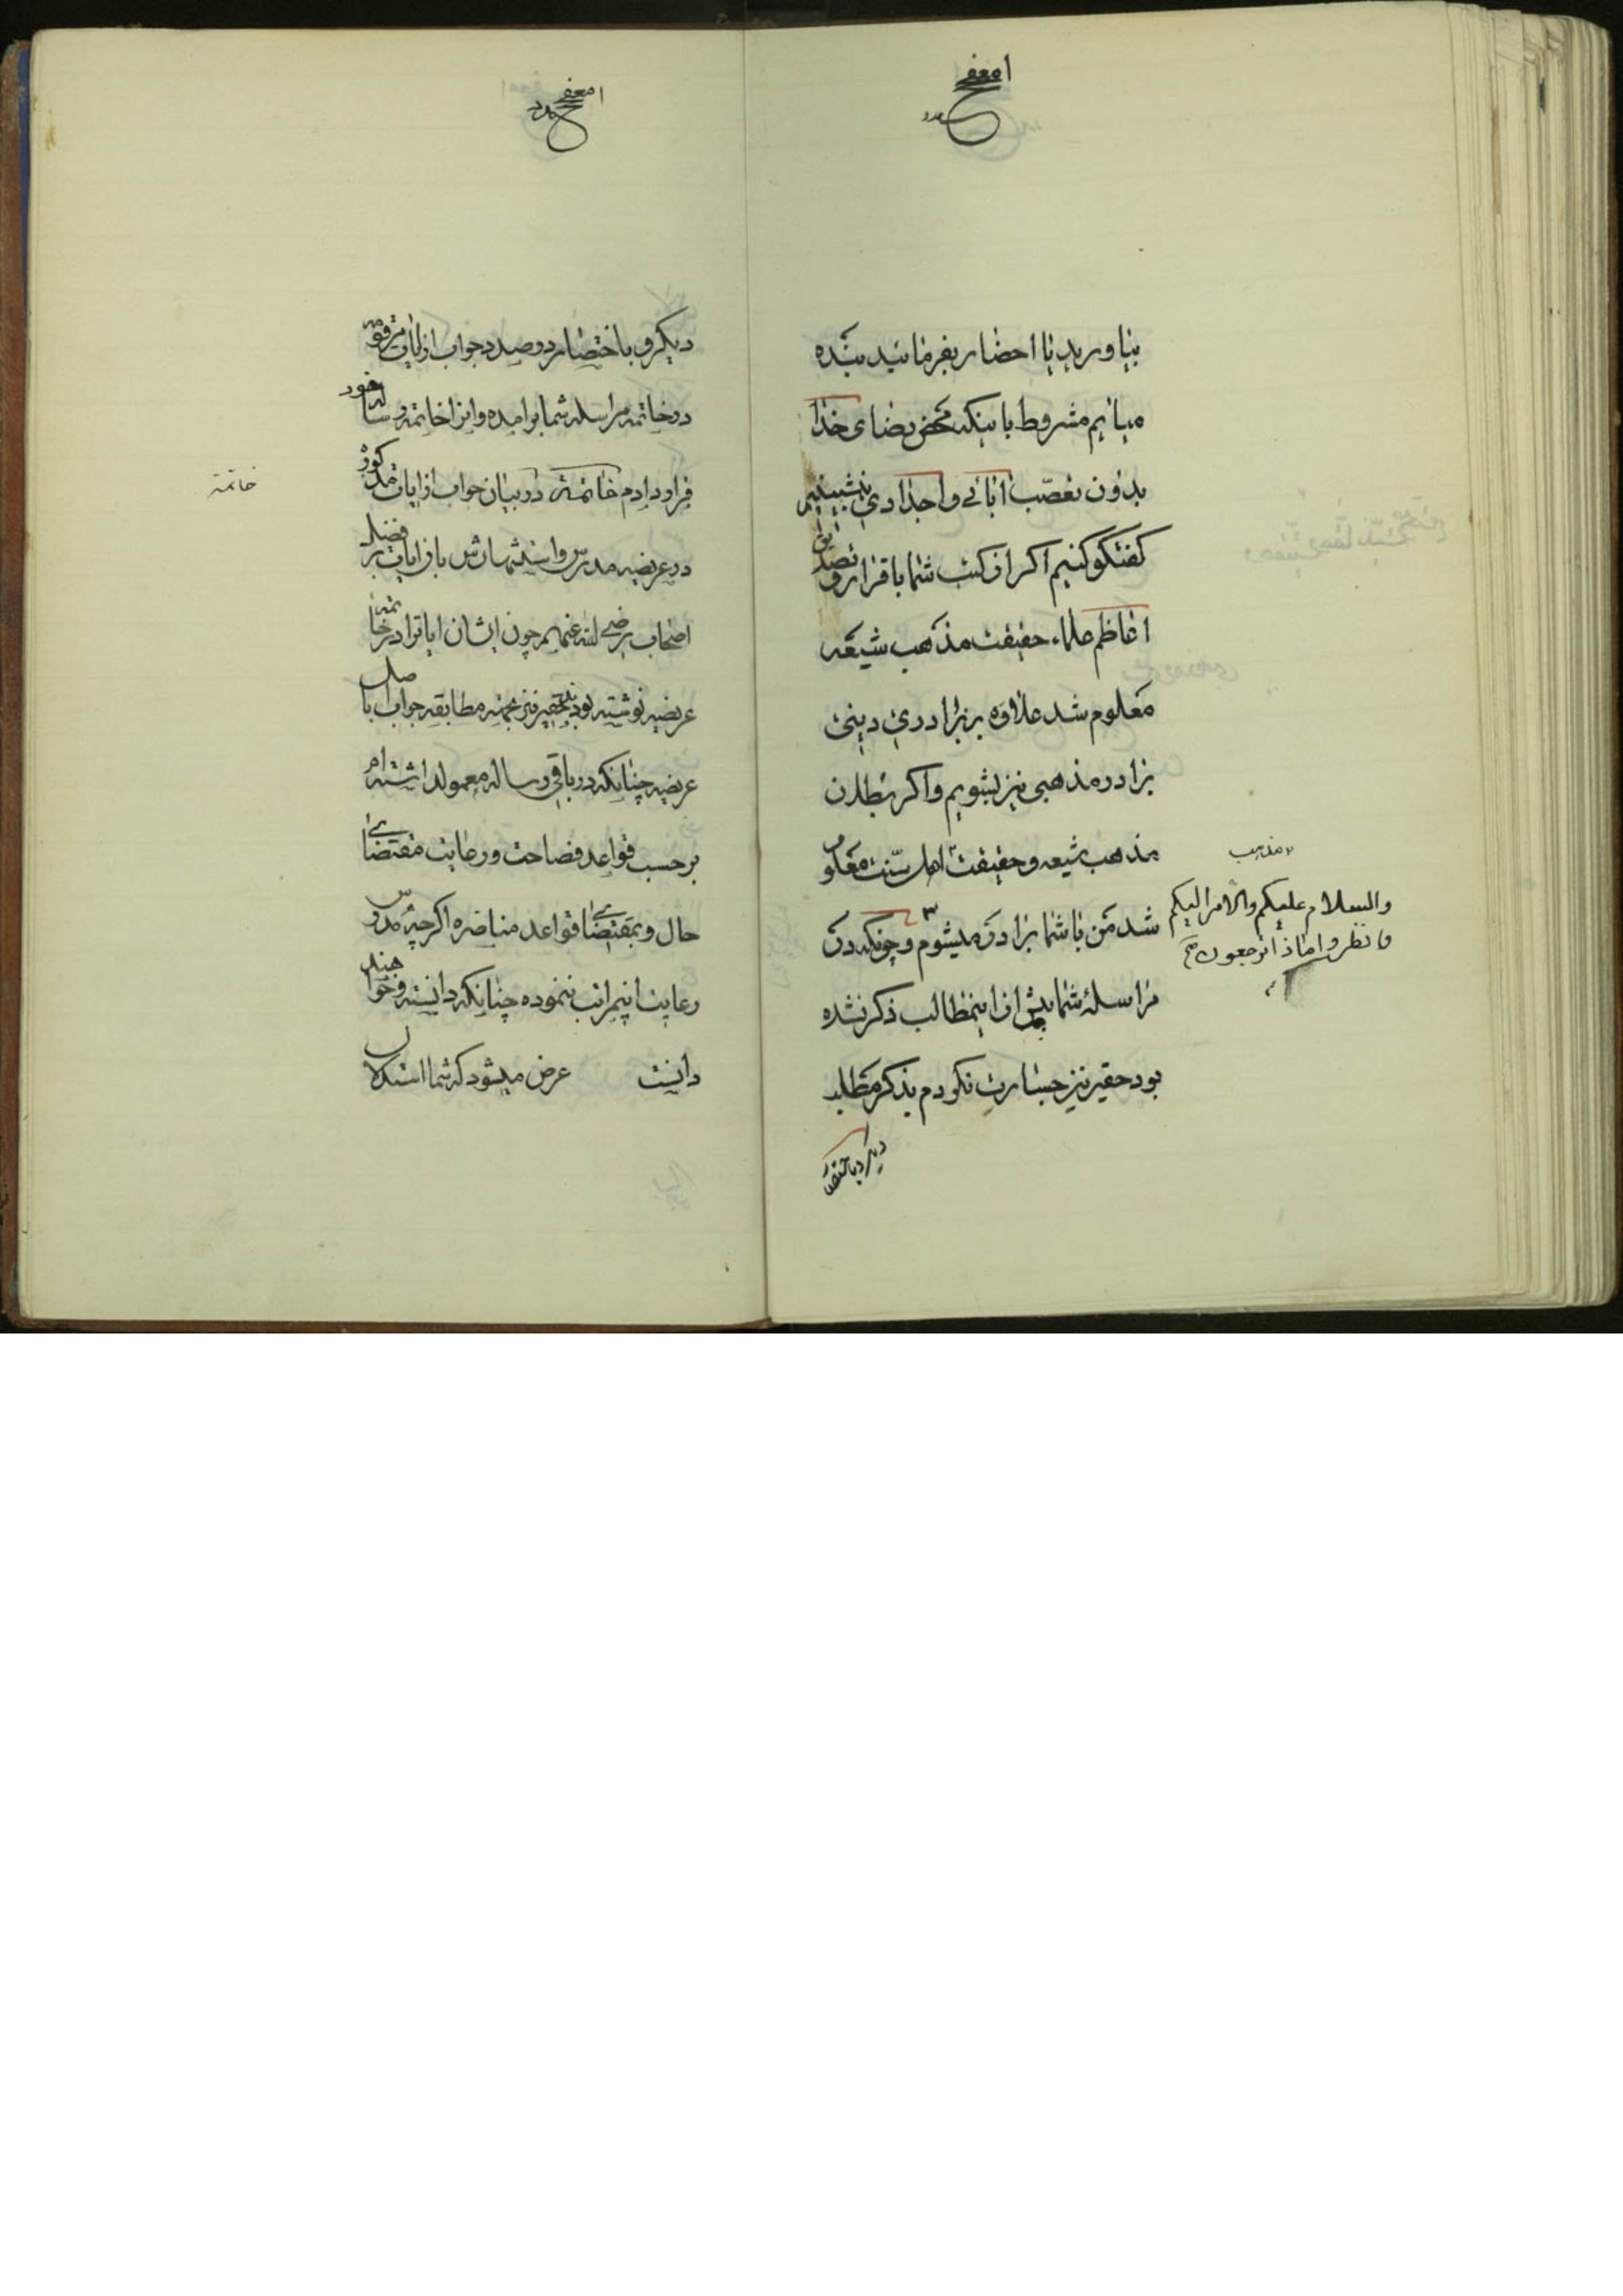 بیاورید یا احضار بفرمائید بنده
میایم مشروط باینکه محض رضای خدا
بدون تعصّب ابائی و اجدادی بنشینیم
کفتکو کنیم اکر از کتب شما باقرار و تصدیق
اعاظم علماء حقیقت مذهب شیعه
معلوم شد علاوه بر برادری دینی
برادر مذهبی نیز بشویم و اکر بطلان
مذهب شیعه و حقیقت اهل سنّت معلوم
شد من با شما برادر میشوم و چونکه در
مراسلهٔ شما بیش از اینمطالب ذکر نشده
بود حقیر نیز جسارت نکردم بذکر مطلب
دیکر و باختصار
مذهب
والسلام علیکم والامر الیکم
فانظروا ماذا ترجعون صح
دیکر و باختصار در صدد جواب از ایات مرقومه
در خاتمه مراسله شما برامده و انرا خاتمه رساله خود
قرار دادم خاتمه در بیان جواب از ایات مذکوره
در عریضه مدرّس و استشهادش بان ایات بر فضل
اصحاب رضی الله عنهم چون ایشان ایاترا در خاتمه
عریضه نوشته بودند حقیر نیز بجهته مطابقه جواب با اصل
عریضه چنانکه در باقی رساله معمول داشته‌ام
بر حسب قواعد فصاحت و رعایت مقتضای
حال و بمقتضای قواعد مناظره اکر چه مدرس
رعایت اینمراتب ننموده چنانکه دانسته و خواهند
دانست عرض میشود که شما استدلال
خاتمة